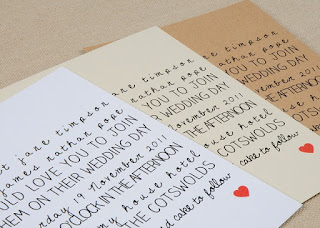 jane timpson
james nathan pope
LD LOVE YOU TO JOIN
THEM ON THEIR WEDDING DAY
19 November 201
O'CLOCK IN THE AFTERNOON
house hotel
THE COTSWOLDS
cake to follow
jane timpson
nathan pope
YOU TO JOIN
WEDDING DAY
November 201
THE AFTERNOON
house hotel
COTSWOLDS
cake to follow
jane timpson
nathan pope
YOU TO JOIN
WEDDING DAY
November 2011
AFTERNOON
house hotel
COTSWOLDS
cake to follow